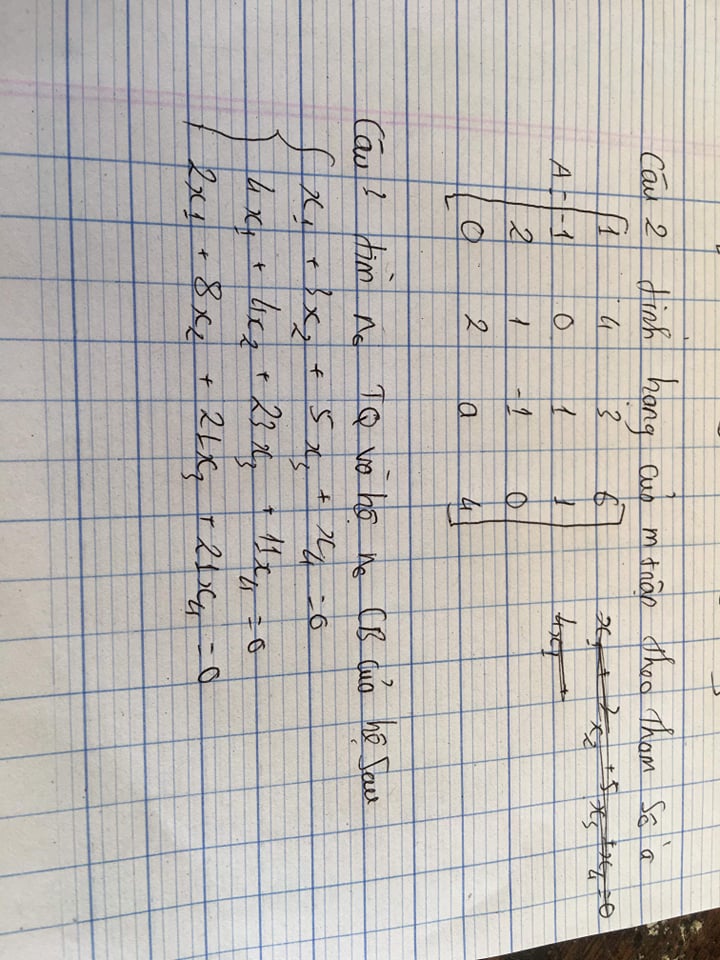 Câu 2 tính hạng của m trận theo tham số a
1 4 3 6
A = -1 0 1 1
2 1 -1 0
0 2 a 4
x₁ + 3x₂ + 5x₃ + x₄ = 0
4x₁ +
Câu 3 tìm n₀ TQ và hệ n₀ CB của hệ sau
x₁ + 3x₂ + 5x₃ + x₄ = 0
4x₁ + 4x₂ + 23x₃ + 11x₄ = 0
2x₁ + 8x₂ + 21x₃ + 21x₄ = 0